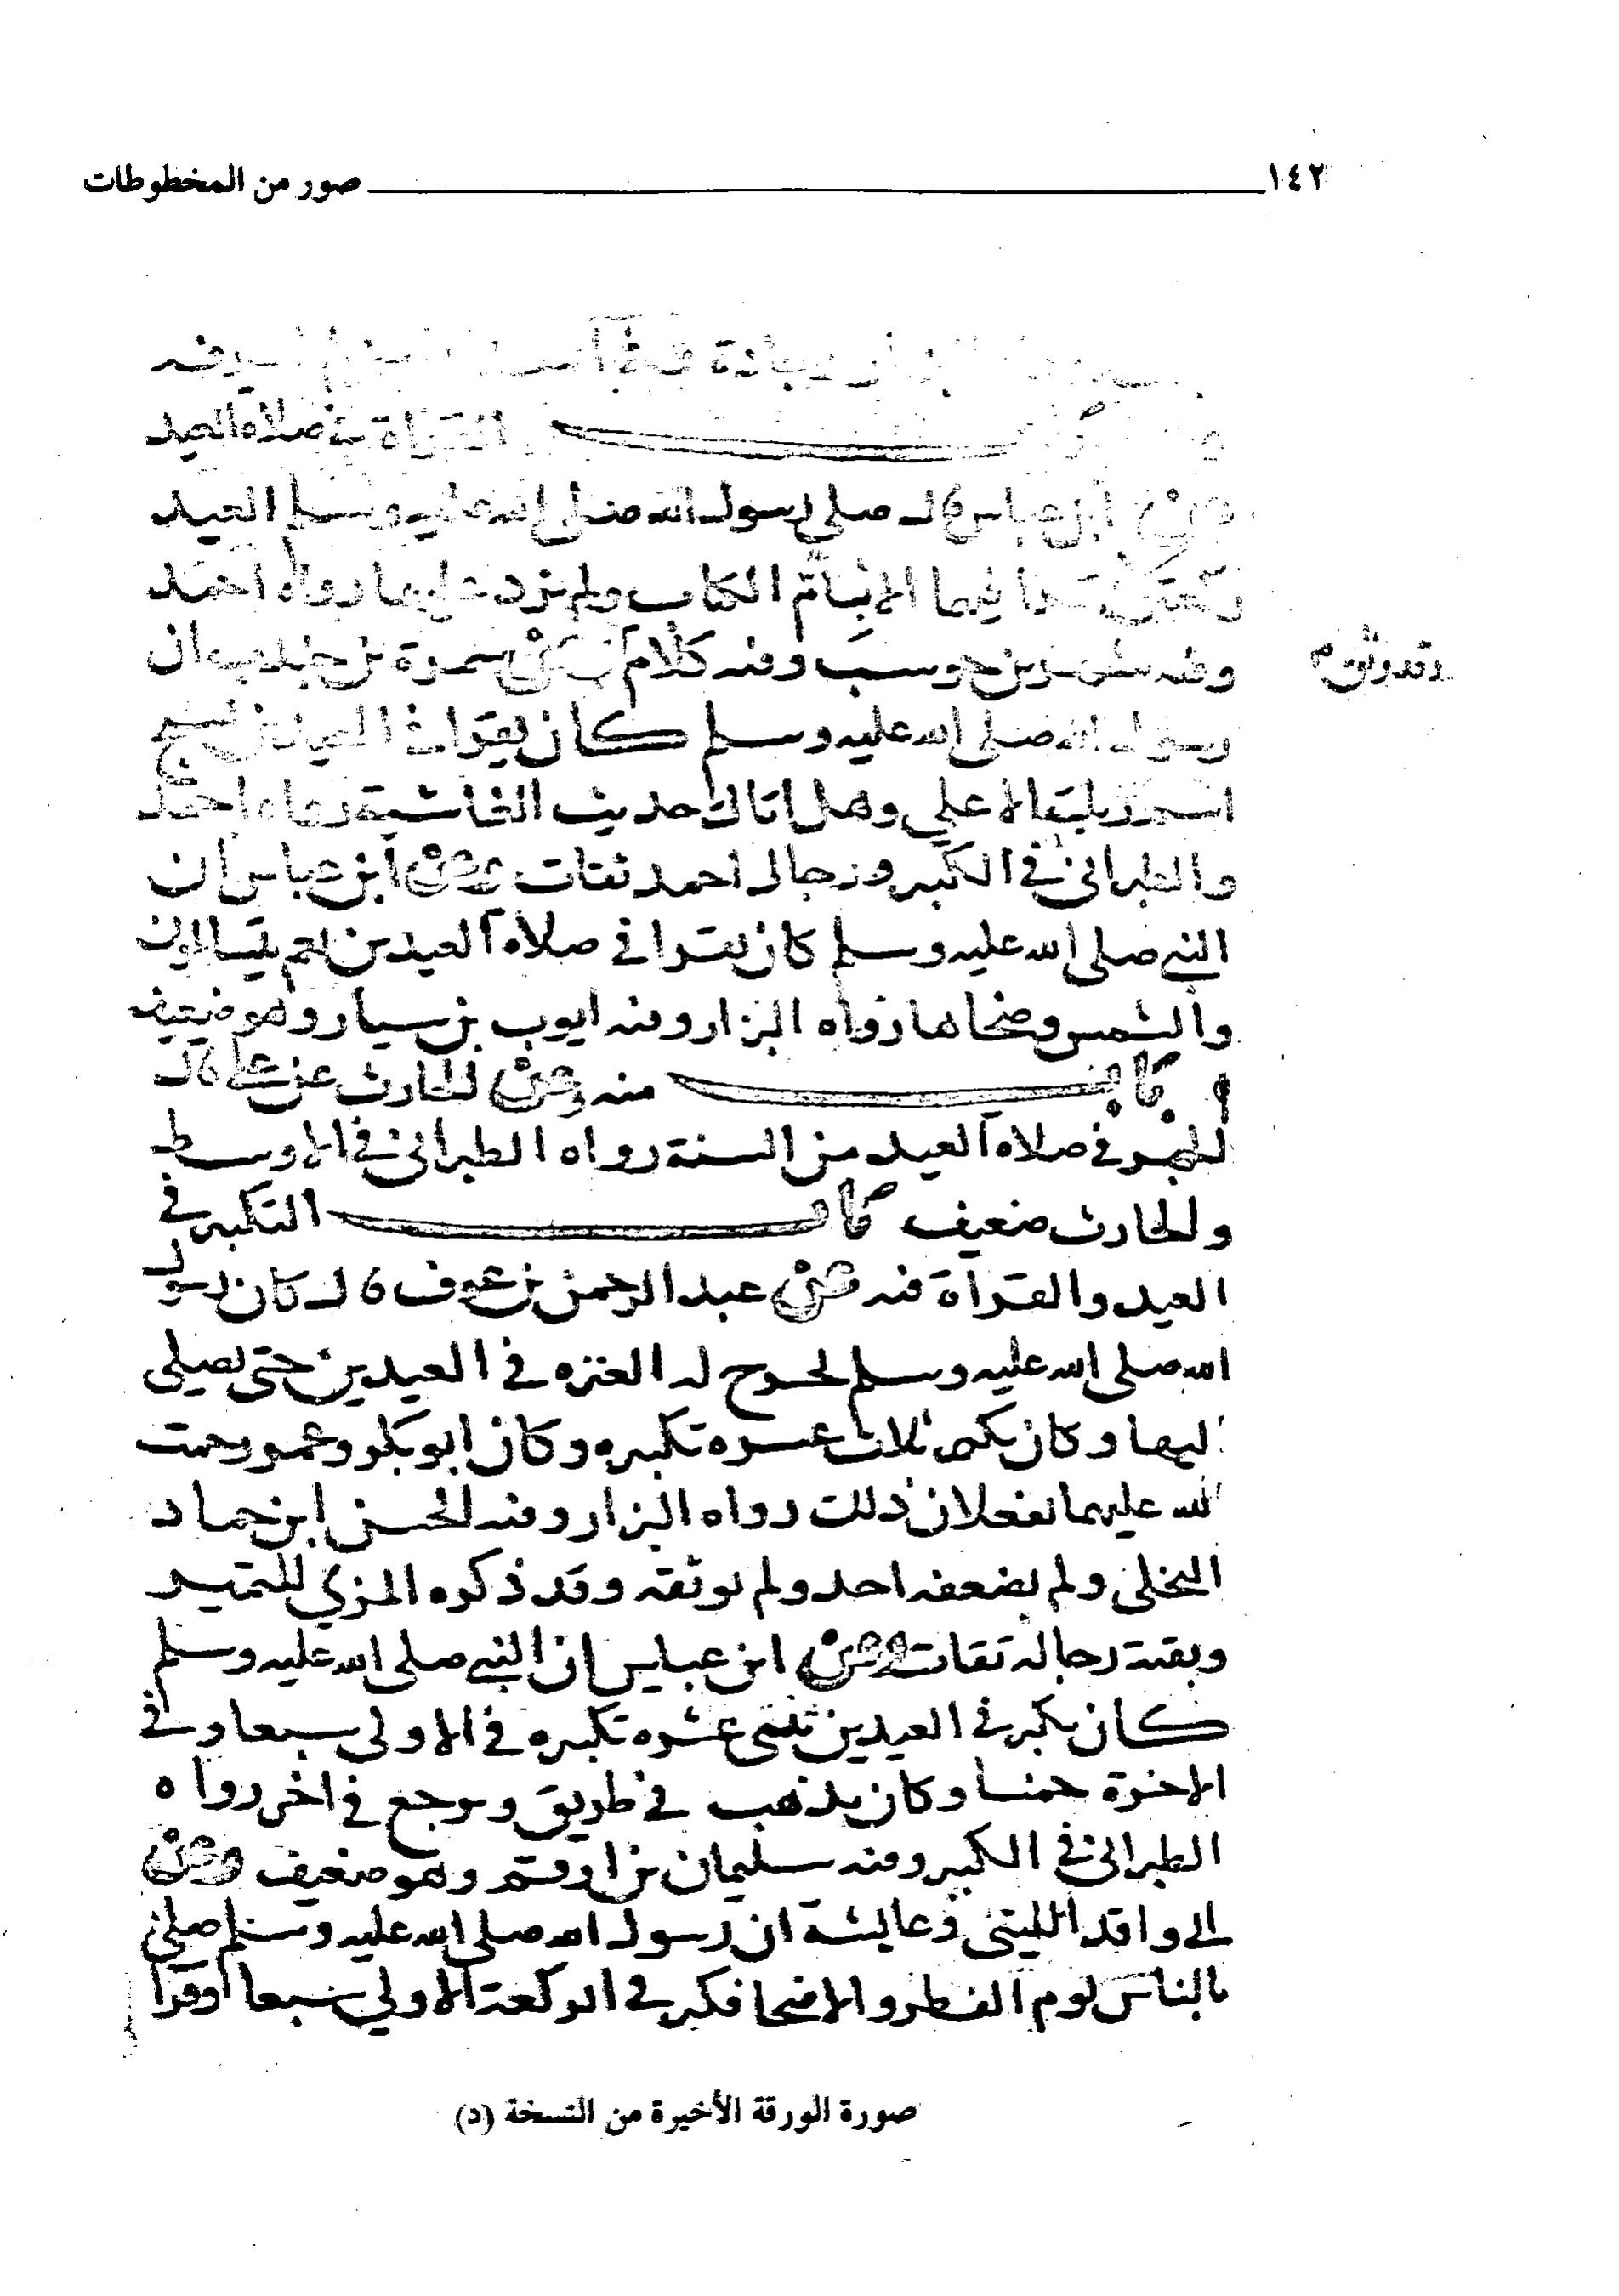 ١٤٢ صور من المخطوطات
القراة في صلاة العيد
ابن عباس قال صلى رسول الله صلى الله عليه وسلم العيد
ركعتين لا يقرا فيهما الا بام الكتاب ولم يزد عليها رواه احمد
وفيه شهر بن حوشب وفيه كلام وعن سمرة بن جندب ان
وقد وثق
رسول الله صلى الله عليه وسلم كان يقرا في العيدين بسبح
اسم ربك الاعلى وهل اتاك حديث الغاشية رواه احمد
والطبراني في الكبير ورجال احمد ثقات وعن ابن عباس ان
النبي صلى الله عليه وسلم كان يقرا في صلاة العيدين بعم يتسالون
والشمس وضحاها رواه البزار وفيه ايوب بن سيار وهو ضعيف
باب منه وعن الحارث عن علي قال
الجهر في صلاة العيد من السنة رواه الطبراني في الاوسط
والحارث ضعيف باب التكبير في
العيد والقراة فيه عن عبد الرحمن بن عوف قال كان رسول
الله صلى الله عليه وسلم تخرج له العنزه في العيدين حتى يصلي
اليها وكان يكبر ثلاث عشره تكبيره وكان ابو بكر وعمر رحمت
الله عليهما يفعلان ذلك رواه البزار وفيه الحسن ابن حماد
البجلي ولم يضعفه احد ولم يوثقه وقد ذكره المزي للتمييز
وبقية رجاله ثقات وعن ابن عباس ان النبي صلى الله عليه وسلم
كان يكبر في العيدين ثنتى عشره تكبيره في الاولى سبعا وفي
الاخرة خمسا وكان يذهب في طريق ويرجع في اخر رواه
الطبراني في الكبير وفيه سليمان بن ارقم وهو ضعيف وعن
ابي واقد الليثي وعايشة ان رسول الله صلى الله عليه وسلم صلى
بالناس يوم الفطر والاضحا فكبر في الركعة الاولي سبعا وقرا
صورة الورقة الأخيرة من النسخة (د)